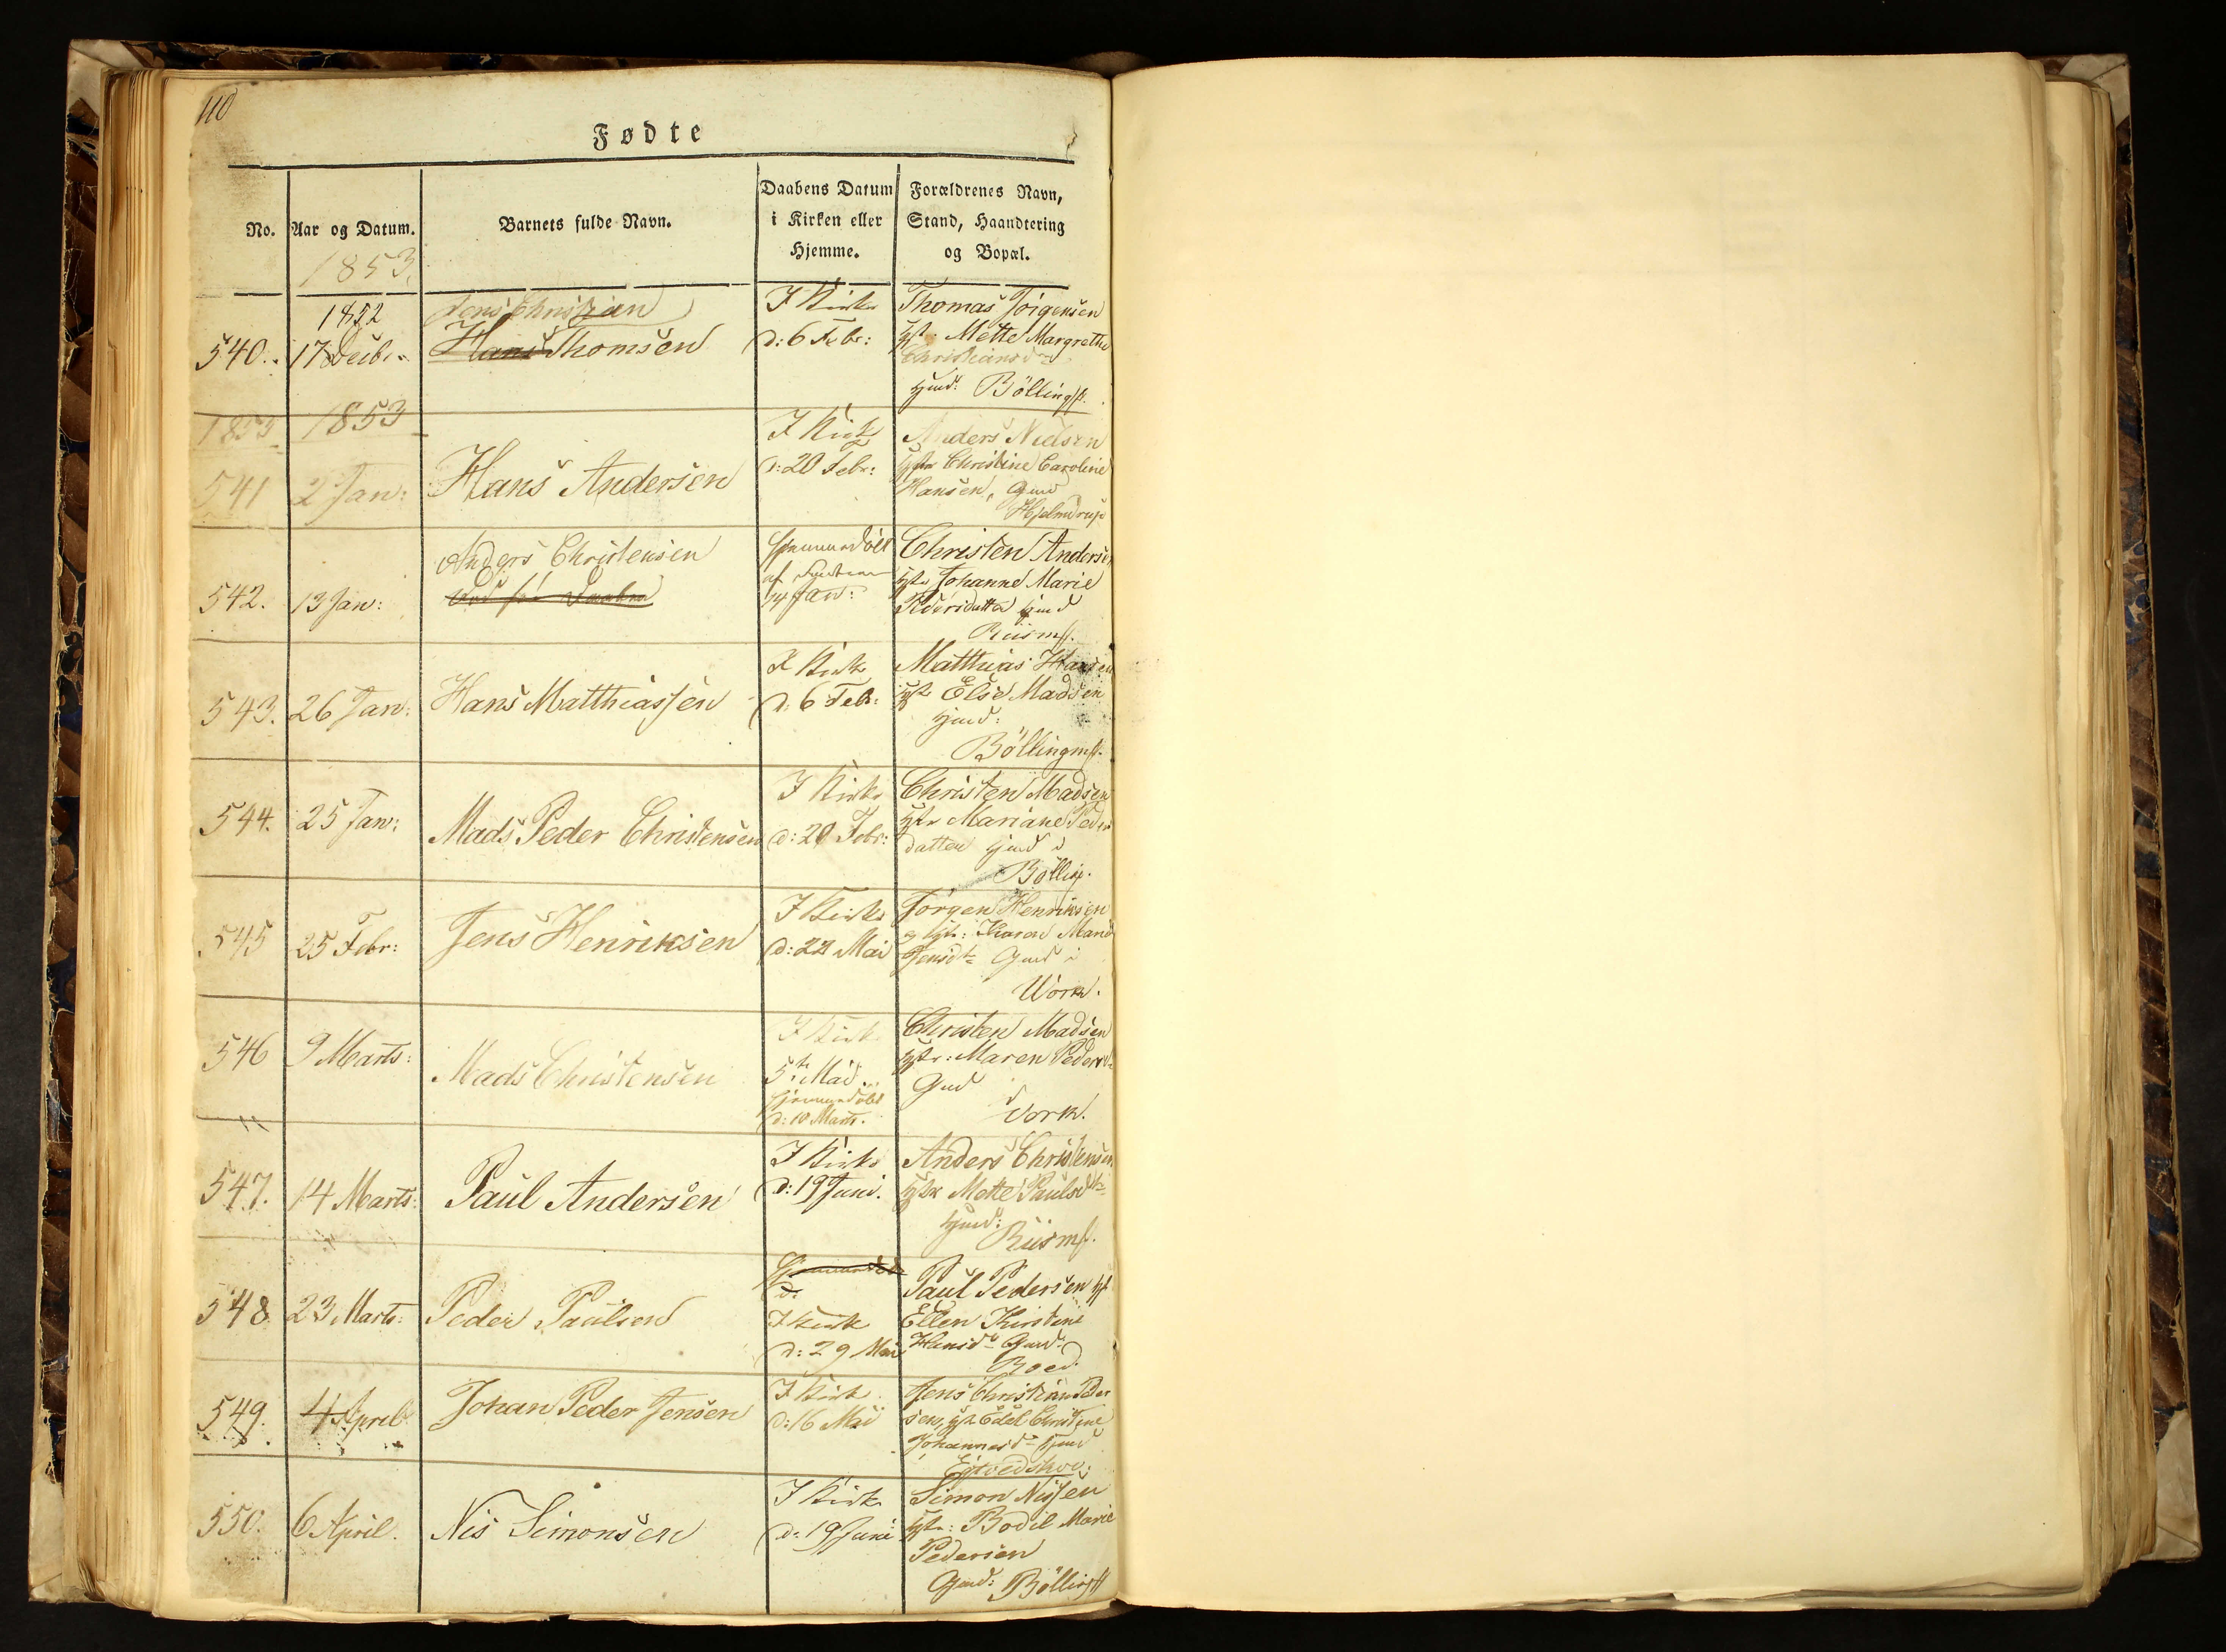 110
Fødte
No.
Aar og Datum.
Barnets fulde Navn.
Daabens Datum
i Kirken eller
Hjemme.
Forældrenes Navn,
Stand, Haandtering
og Bopæl.
1853
1852
540. 17 Decbr.
Jens Christian
Hans Thomsen
I Kirke
d: 6 Febr:
Thomas Jörgensen
Mette Margrethe
Huusmd: Bölling
1853 1853
541 2 Jan:
Hans Andersen
I Kirk
d: 20 Febr:
Anders Nielsen
Christine Caroline
Hansen, Gmd
Hjelmdrup
542. 13 Jan:
Anders Christensen
død før Daaben
Hjemmedöbt
14 Jan:
Christen Andersen
Johanne Marie
543. 26 Jan:
Hans Matthiassen
I Kirk
d: 6 Feb:
Matthias Hansen
Else Madsen
544. 25 Jan:
Mads Peder Christensen
I Kirke
d: 20 Febr:
Christen Madsen
Mariane Peders
datter
545 25 Febr:
Jens Henriksen
I Kirke
d: Mai
Jörgen Henriksen
Karen Marie
Work.
546 9 Marts:
Mads Christensen
I Kirk
5te Mai
Hjemmedöbt
d: 10 Marts.
Christen Madsen
Maren Peders
Gmd
i
Vork.
547. 14 Marts:
Paul Andersen
I Kirke
d: 19 Juni.
Anders Christensen
Mette Paulsd
548 23 Marts:
Peder Paulsen
d:
I Kirk
d: 29 Mai
Paul Pedersen
Ellen Kirstine
Hansd Gmd:
549. 4 April
Johan Peder Jensen
I Kirk
d: 16 Mai
Jens Christian Peder
sen, Christine
Johannesd
Egtvedskov.
550. 6 April.
Nis Simonsen
I Kirk
d: 19 Juni
Simon Nissen
Bodil Marie
Pedersen
Gmd: Bölling